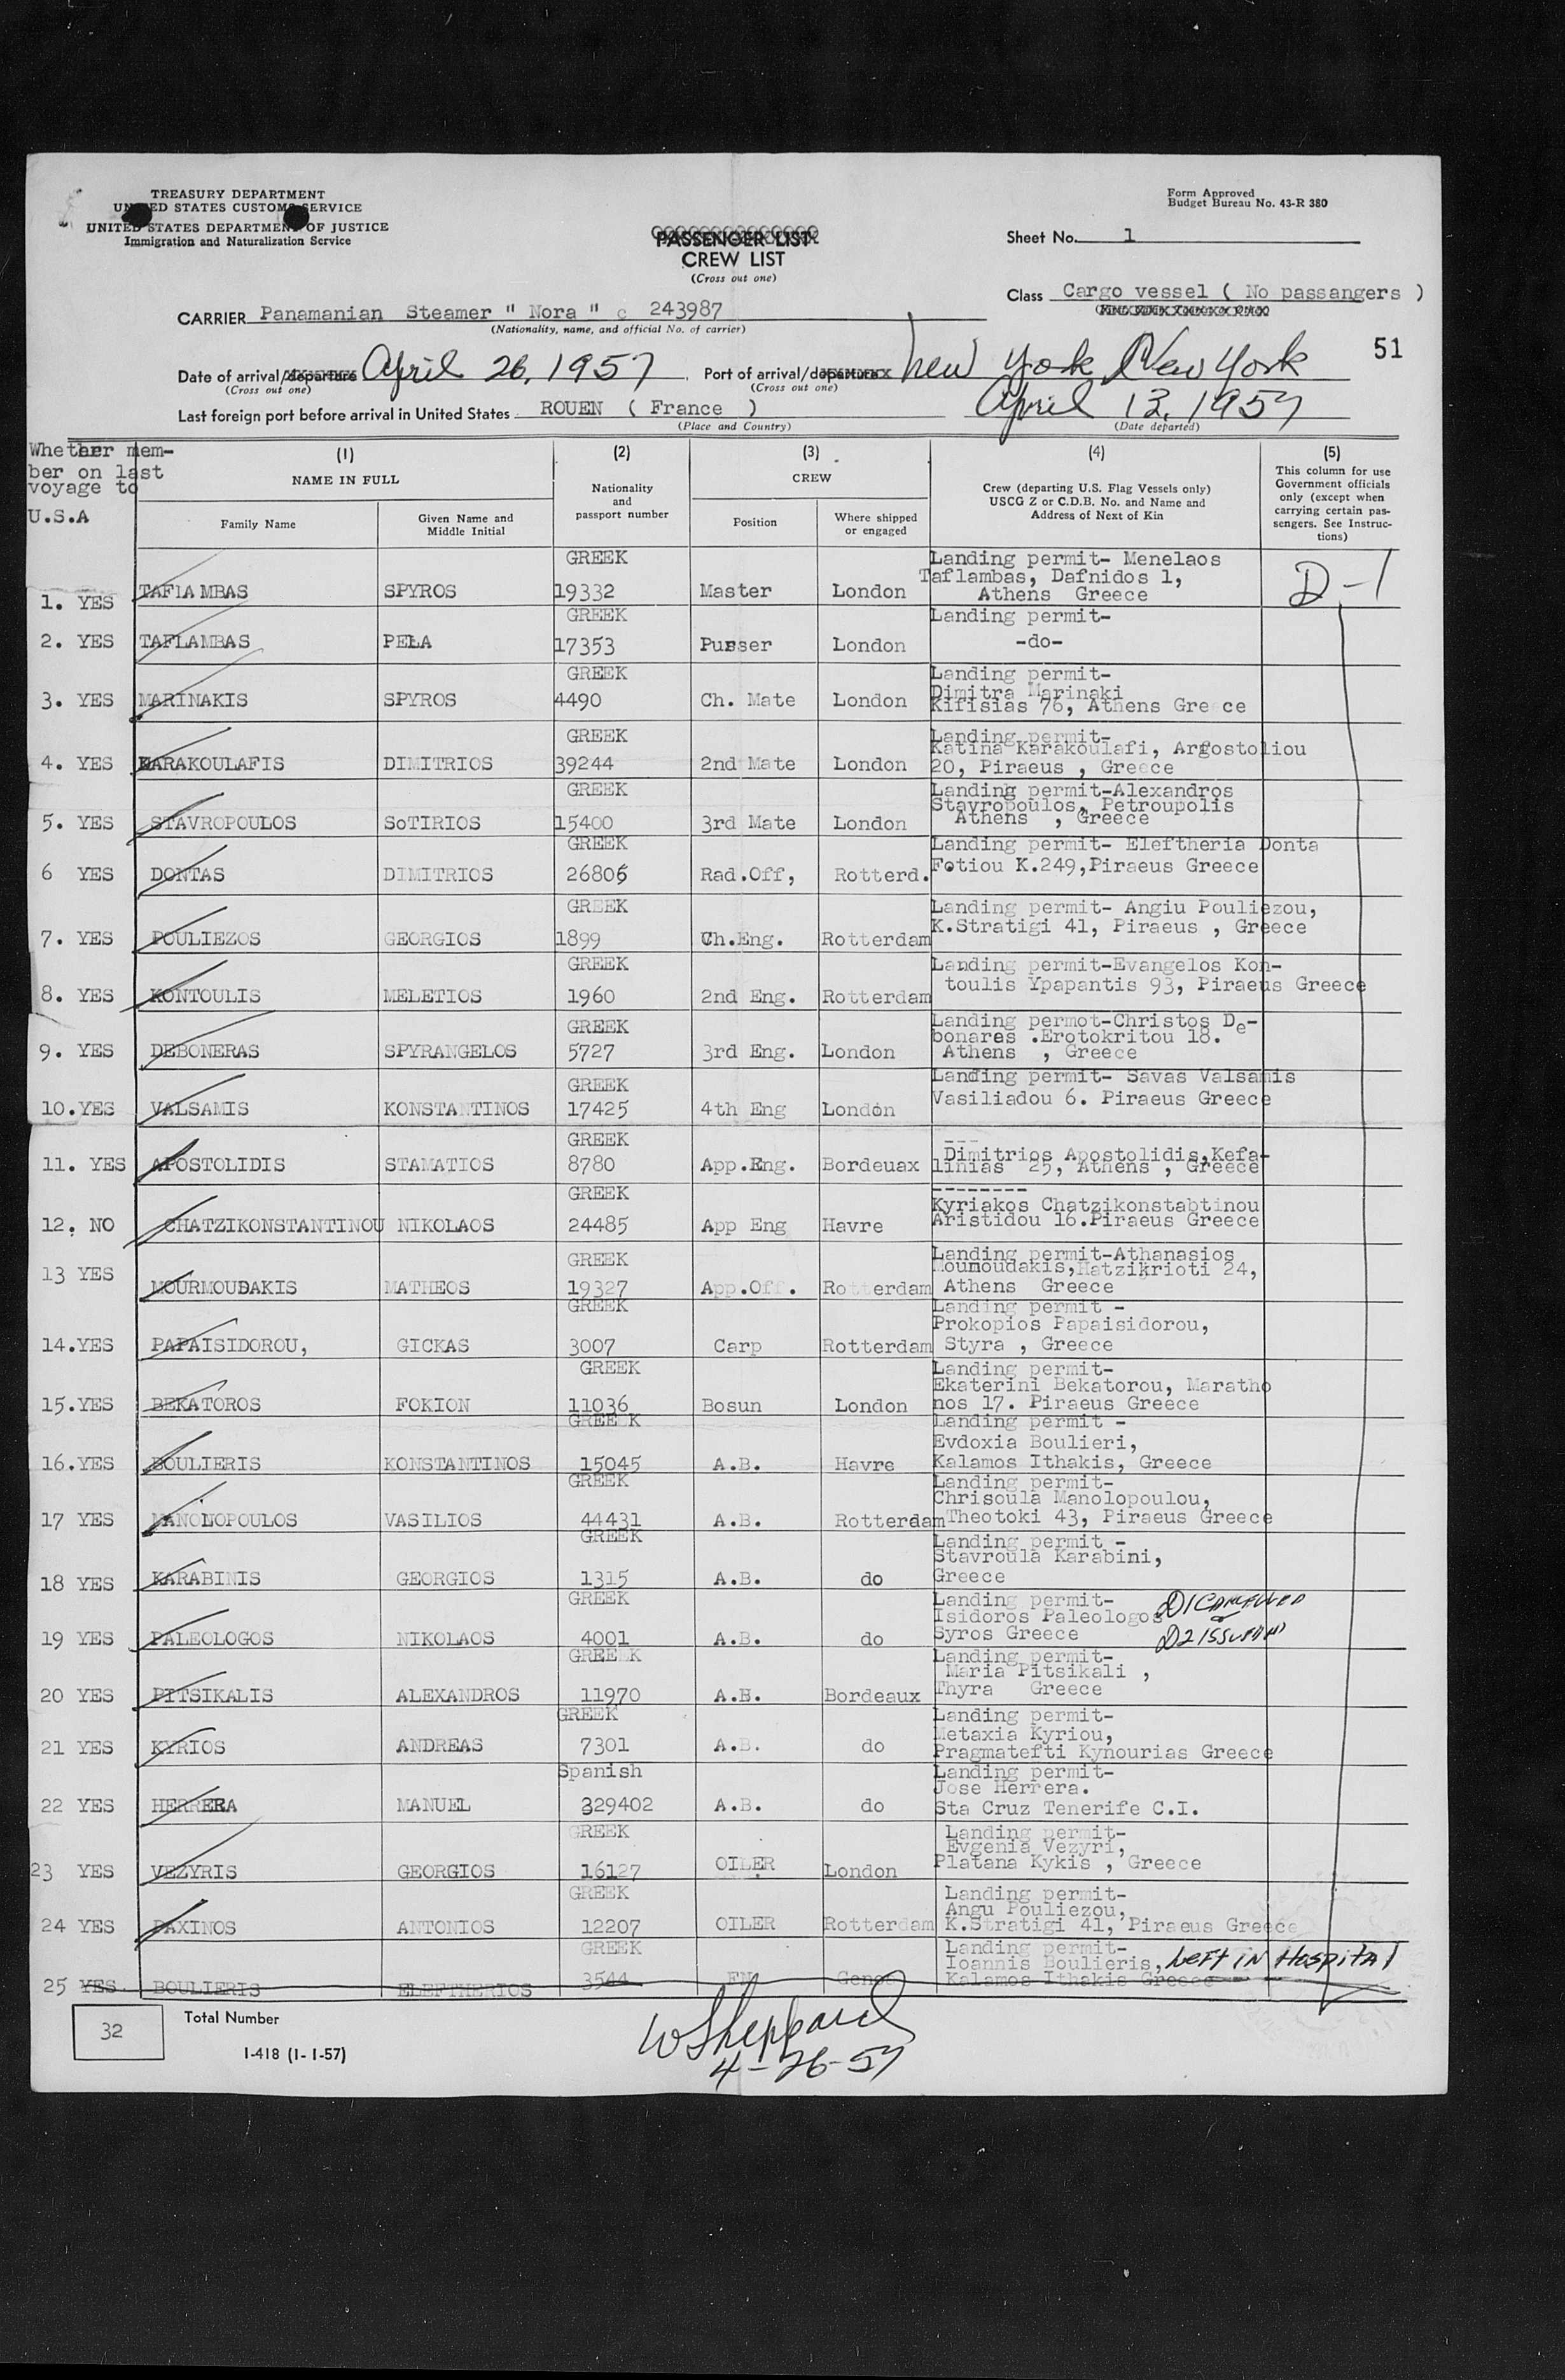 TREASURY DEPARTMENT
UNITED STATES CUSTOMS SERVICE
UNITED STATES DEPARTMENT OF JUSTICE
Immigration and Naturalization Service
Form Approved
Budget Bureau No. 43-R 380
PASSENGER LIST
CREW LIST
(Cross out one)
Sheet No. 1
Class Cargo vessel ( No passangers )
CARRIER Panamanian Steamer " Nora " c 243987
(Nationality, name, and official No. of carrier)
51
Date of arrival/departure April 26, 1957 Port of arrival/departure New York, New York
(Cross out one) (Cross out one)
Last foreign port before arrival in United States ROUEN ( France ) April 13, 1957
(Place and Country) (Date departed)
Whether mem-
ber on last
voyage to
U.S.A
(1) (2) (3) (4) (5)
NAME IN FULL
Family Name
Given Name and
Middle Initial
Nationality
and
passport number
CREW
Position
Where shipped
or engaged
Crew (departing U.S. Flag Vessels only)
USCG Z or C.D.B. No. and Name and
Address of Next of Kin
This column for use
Government officials
only (except when
carrying certain pas-
sengers. See Instruc-
tions)
GREEK Landing permit- Menelaos
Taflambas, Dafnidos 1,
1. YES TAFlAMBAS SPYROS 19332 Master London Athens Greece D-1
GREEK Landing permit-
2. YES TAFLAMBAS PELA 17353 Purser London -do-
GREEK Landing permit-
Dimitra Marinaki
3. YES MARINAKIS SPYROS 4490 Ch. Mate London Kifisias 76, Athens Gre ce
GREEK Landing permit-
Katina Karakoulafi, Argostoliou
4. YES KARAKOULAFIS DIMITRIOS 39244 2nd Mate London 20, Piraeus , Greece
GREEK Landing permit-Alexandros
Stavropoulos, Petroupolis
5. YES STAVROPOULOS SoTIRIOS 15400 3rd Mate London Athens , Greece
GREEK Landing permit- Eleftheria Donta
6 YES DONTAS DIMITRIOS 26806 Rad.Off, Rotterd. Fotiou K.249,Piraeus Greece
GREEK Landing permit- Angiu Pouliezou,
K.Stratigi 41, Piraeus , Greece
7. YES POULIEZOS GEORGIOS 1899 Ch.Eng. Rotterdam
GREEK Landing permit-Evangelos Kon-
8. YES KONTOULIS MELETIOS 1960 2nd Eng. Rotterdam toulis Ypapantis 93, Piraeus Greece
GREEK Landing permot-Christos De-
bonares .Erotokritou 18.
9. YES DEBONERAS SPYRANGELOS 5727 3rd Eng. London Athens , Greece
GREEK Landing permit- Savas Valsamis
10.YES VALSAMIS KONSTANTINOS 17425 4th Eng London Vasiliadou 6. Piraeus Greece
GREEK ---
Dimitrios Apostolidis,Kefa-
11. YES APOSTOLIDIS STAMATIOS 8780 App.Eng. Bordeuax linias 25, Athens , Greece
GREEK --------
Kyriakos Chatzikonstabtinou
12. NO CHATZIKONSTANTINOU NIKOLAOS 24485 App Eng Havre Aristidou 16.Piraeus Greece
GREEK Landing permit-Athanasios
Moumoudakis,Hatzikrioti 24,
13 YES MOURMOUDAKIS MATHEOS 19327 App.Off. Rotterdam Athens Greece
GREEK Landing permit -
Prokopios Papaisidorou,
14.YES PAPAISIDOROU, GICKAS 3007 Carp Rotterdam Styra , Greece
GREEK Landing permit-
Ekaterini Bekatorou, Maratho
15.YES BEKATOROS FOKION 11036 Bosun London nos 17. Piraeus Greece
GREEK Landing permit -
Evdoxia Boulieri,
16.YES BOULIERIS KONSTANTINOS 15045 A.B. Havre Kalamos Ithakis, Greece
GREEK Landing permit-
Chrisoula Manolopoulou,
17 YES MANOLOPOULOS VASILIOS 44431 A.B. Rotterdam Theotoki 43, Piraeus Greece
GREEK Landing permit -
Stavroula Karabini,
18 YES KARABINIS GEORGIOS 1315 A.B. do Greece
GREEK Landing permit- D1 CANCELLED
Isidoros Paleologos &
19 YES PALEOLOGOS NIKOLAOS 4001 A.B. do Syros Greece D2 ISSUED
GREEK Landing permit-
Maria Pitsikali ,
20 YES PITSIKALIS ALEXANDROS 11970 A.B. Bordeaux Thyra Greece
GREEK Landing permit-
Metaxia Kyriou,
21 YES KYRIOS ANDREAS 7301 A.B. do Pragmatefti Kynourias Greece
Spanish Landing permit-
Jose Herrera.
22 YES HERRERA MANUEL 329402 A.B. do Sta Cruz Tenerife C.I.
GREEK Landing permit-
Evgenia Vezyri,
23 YES VEZYRIS GEORGIOS 16127 OILER London Platana Kykis , Greece
GREEK Landing permit-
Angu Pouliezou,
24 YES PAXINOS ANTONIOS 12207 OILER Rotterdam K.Stratigi 41, Piraeus Greece
GREEK Landing permit-
Ioannis Boulieris, Left in Hospital
25 YES. BOULIERIS ELEFTHERIOS 3544 FM Genoa Kalamos Ithakis Greece
32 Total Number
I-418 (1-1-57)
W Sheppard
4-26-57